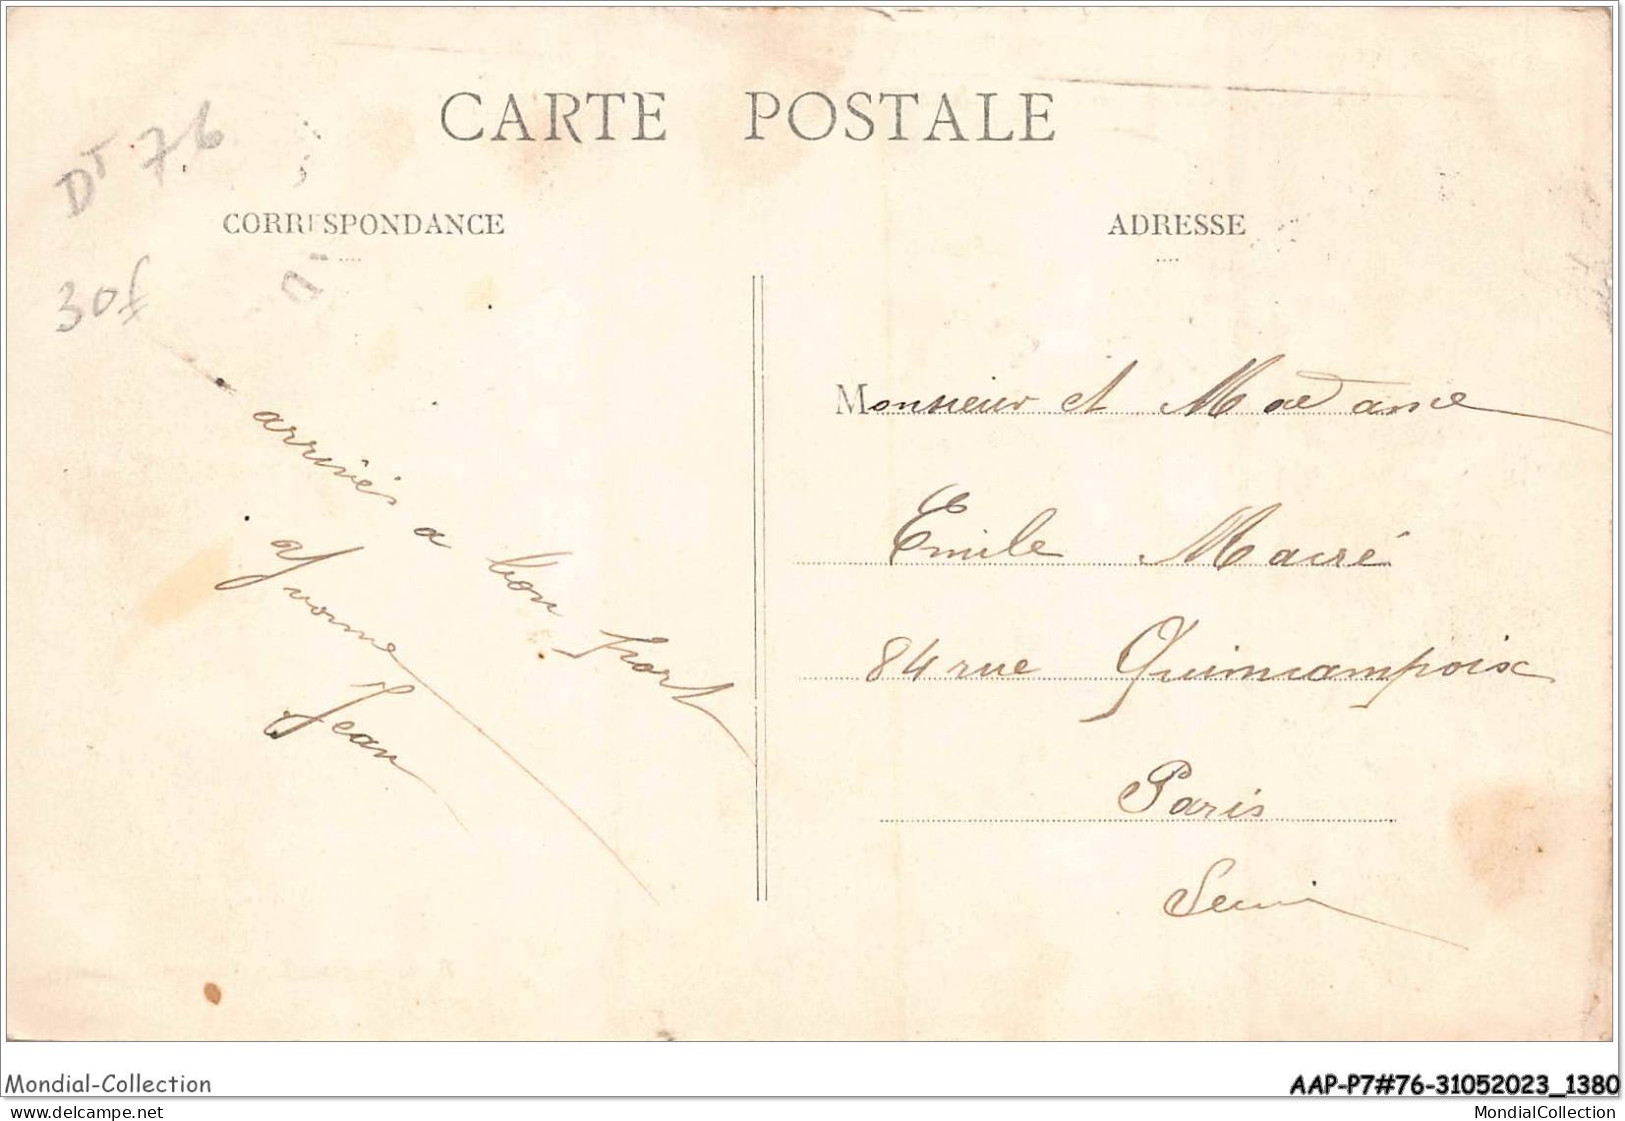 CARTE POSTALE
DT 76
CORRESPONDANCE
ADRESSE
30f
arrivés a bon port
Yvonne
Jean
Monsieur et Madame
Emile Macré
84 rue Quincampoix
Paris
Seine
Mondial-Collection
AAP-P7#76-31052023_1380
www.delcampe.net
MondialCollection